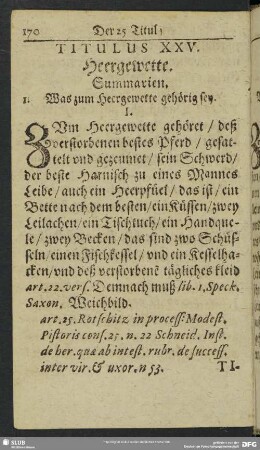 170 Der 25 Titul,
TITULUS XXV.
Heergewette.
Summarien.
1. Was zum Heergewette gehörig sey.
1.
ZUm Heergewette gehöret / deß
verstorbenen bestes Pferd / gesat-
telt und gezeumet / sein Schwerd /
der beste Harnisch zu eines Mannes
Leibe / auch ein Heerpfüel / das ist / ein
Bette nach dem besten / ein Küssen / zwey
Leilachen / ein Tischtuch / ein Handque-
le / zwey Becken / das sind zwo Schüs-
seln / einen Fischkessel / und ein Kesselha-
cken / und deß verstorbenē tägliches kleid
art. 22. vers. Demnach muß lib. 1. Speck.
Saxon. Weichbild.
art. 25. Rotschitz in process: Modest.
Pistoris cons. 25. n. 22 Schneid. Inst.
de her. quæ ab intest. rubr. de success.
inter vir. & uxor. n 53. TI-
SLUB
DFG